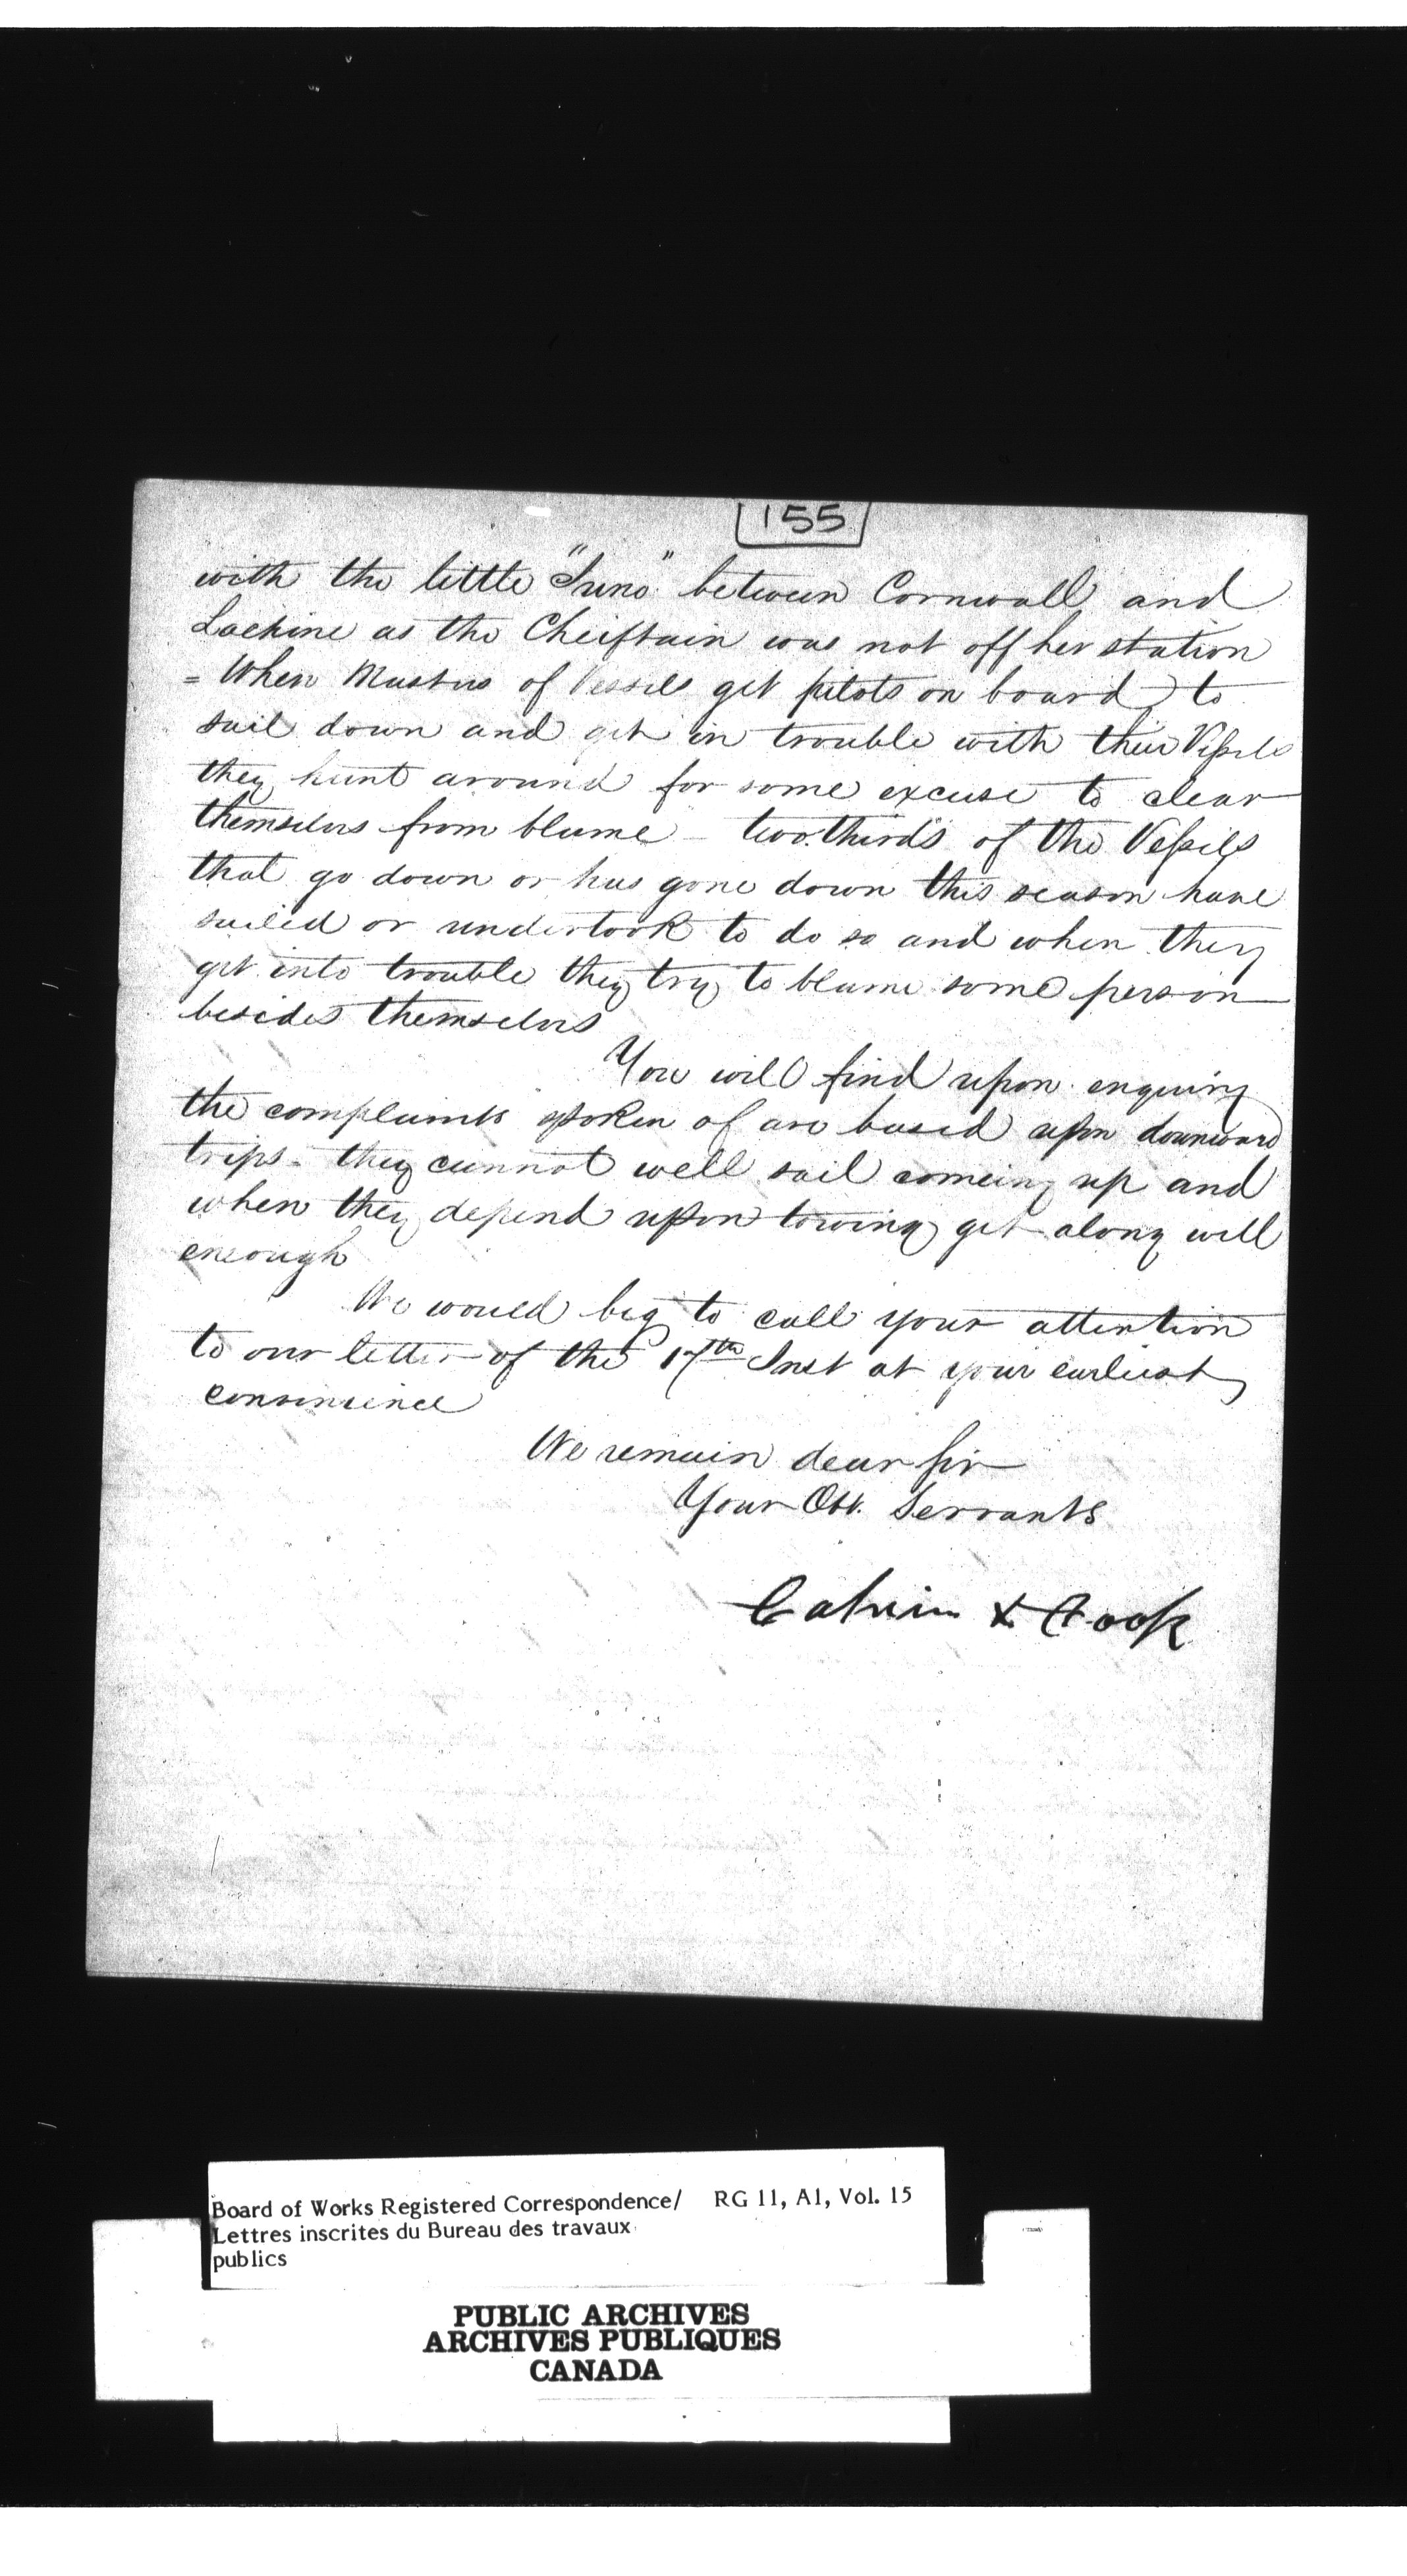 155
with the little "Juno" between Cornwall and
Lachine as the Cheiftain was not off her station
= When Masters of Vessels get pilots on board to
sail down and get in trouble with their Vessels
they hunt around for some excuse to clear
themselvs from blame - two thirds of the Vessels
that go down or has gone down this season have
sailed or undertook to do so and when they
get into trouble they try to blame some person
besides themselvs
You will find upon enquiry
the complaints spoken of are based upon downward
trips - they cannot well sail comeing up and
when they depend upon towing get along well
enough
We would beg to call your attention
to our letter of the 17th Inst at your earliest
convenience
We remain dear sir
Your Obt. Servants
Calvin & Cook
Board of Works Registered Correspondence/ RG 11, A1, Vol. 15
Lettres inscrites du Bureau des travaux
publics
PUBLIC ARCHIVES
ARCHIVES PUBLIQUES
CANADA